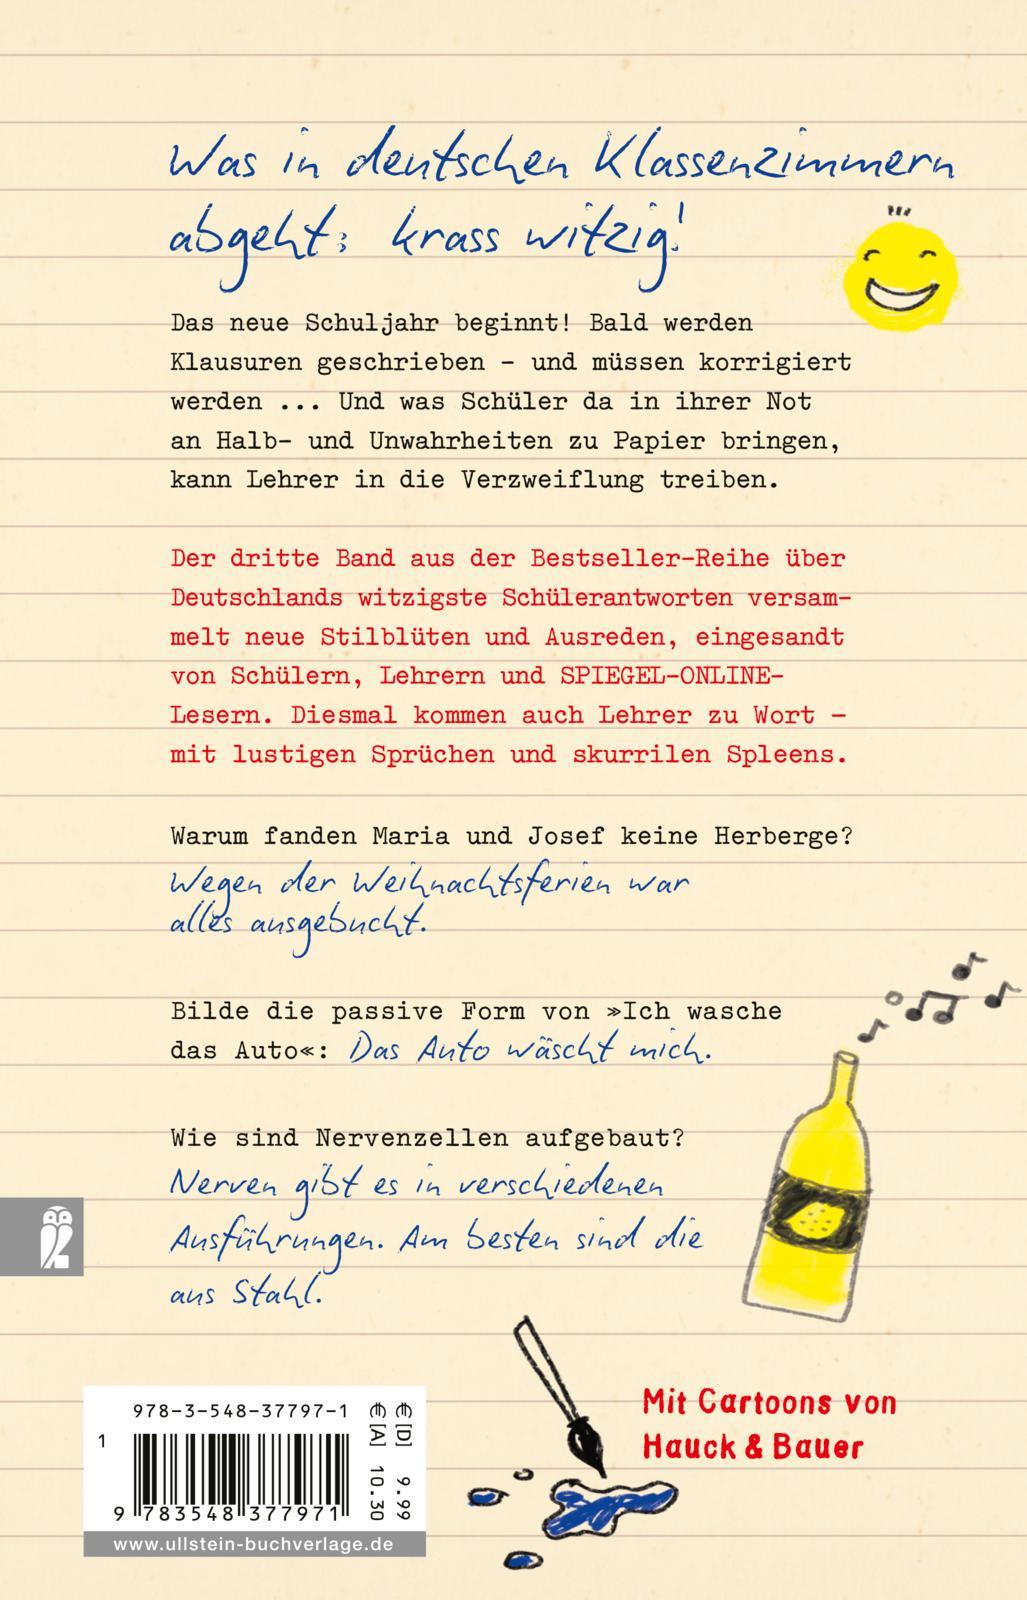 Was in deutschen Klassenzimmern
abgeht: krass witzig!
Das neue Schuljahr beginnt! Bald werden
Klausuren geschrieben – und müssen korrigiert
werden ... Und was Schüler da in ihrer Not
an Halb- und Unwahrheiten zu Papier bringen,
kann Lehrer in die Verzweiflung treiben.
Der dritte Band aus der Bestseller-Reihe über
Deutschlands witzigste Schülerantworten versam-
melt neue Stilblüten und Ausreden, eingesandt
von Schülern, Lehrern und SPIEGEL-ONLINE-
Lesern. Diesmal kommen auch Lehrer zu Wort –
mit lustigen Sprüchen und skurrilen Spleens.
Warum fanden Maria und Josef keine Herberge?
Wegen der Weihnachtsferien war
alles ausgebucht.
Bilde die passive Form von »Ich wasche
das Auto«: Das Auto wäscht mich.
Wie sind Nervenzellen aufgebaut?
Nerven gibt es in verschiedenen
Ausführungen. Am besten sind die
aus Stahl.
Mit Cartoons von
Hauck & Bauer
978-3-548-37797-1
1
9 783548 377971
€ [D] 9.99
€ [A] 10.30
www.ullstein-buchverlage.de